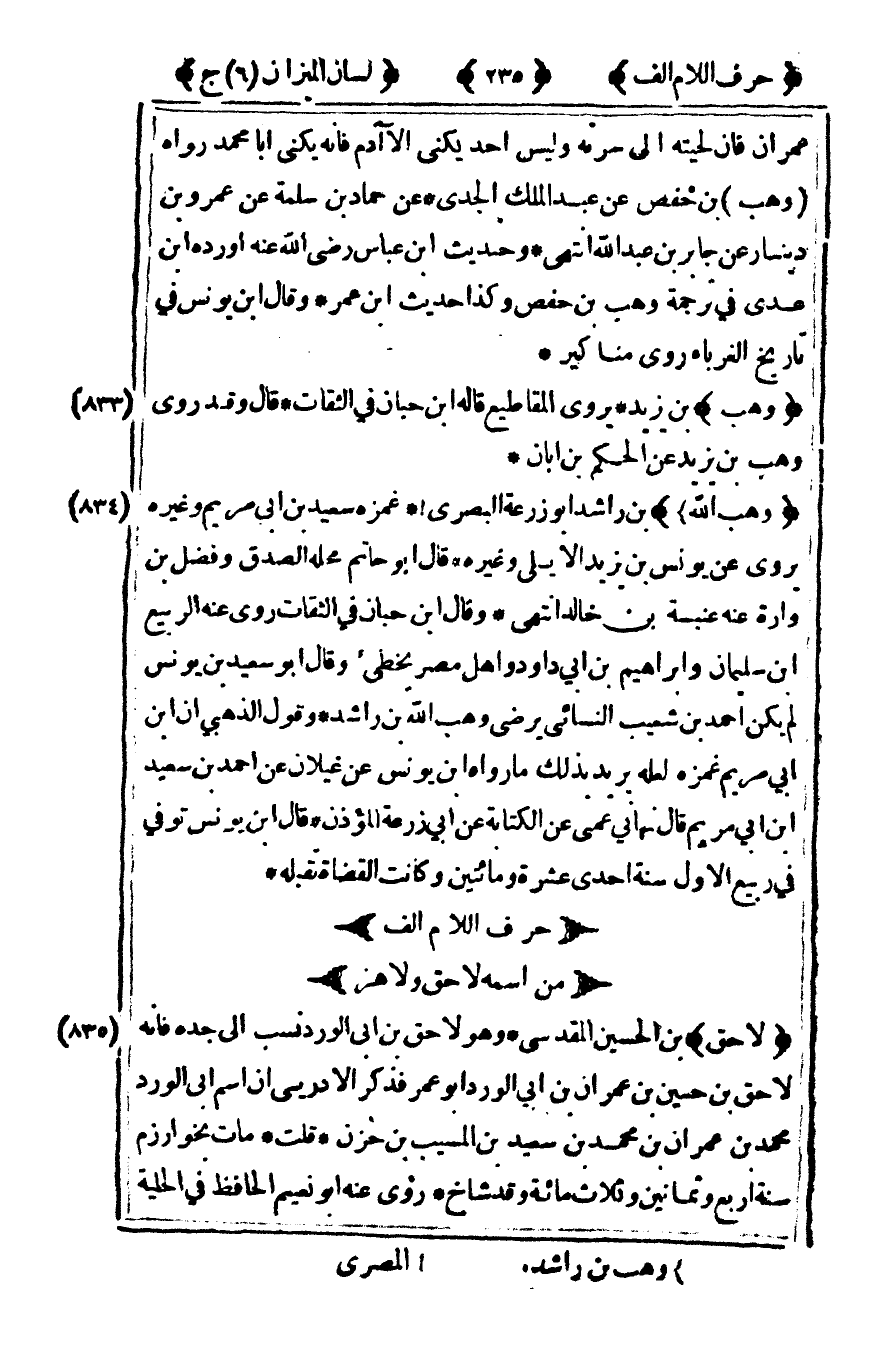 ﴿ حرف اللام الف ﴾ ﴿ ٢٣٥ ﴾ ﴿ لسان الميزان (٦) ج ﴾
عمران فان لحيته الى سرته وليس احد يكنى الا آدم فانه يكنى ابا محمد رواه
(وهب) بن حفص عن عبد الملك الجدى * عن حماد بن سلمة عن عمرو بن
دينار عن جابر بن عبدالله انتهى * وحديث ابن عباس رضى الله عنه اورده ابن
عدى في ترجمة وهب بن حفص وكذا حديث ابن عمر * وقال ابن يونس في
تاريخ الغرباء روى مناكير *
﴿ وهب ﴾ بن زيد * يروى المقاطيع قاله ابن حبان في الثقات * قال وقد روى (٨٣٣)
وهب بن يزيد عن الحكم بن ابان *
﴿ وهب الله } ﴾ بن راشد ابو زرعة البصرى ١ * غمزه سعيد بن ابي مريم وغيره (٨٣٤)
يروى عن يونس بن يزيد الايلى وغيره * قال ابو حاتم محله الصدق وفضل بن
وارة عنه عنبسة بن خالد انتهى * وقال ابن حبان في الثقات روى عنه الربيع
ابن سليمان وابراهيم بن ابي داود واهل مصر يخطىء وقال ابو سعيد بن يونس
لم يكن احمد بن شعيب النسائى يرضى وهب الله بن راشد * وقول الذهبي ان ابن
ابي مريم غمزه لعله يريد بذلك ما رواه ابن يونس عن غيلان عن احمد بن سعيد
ابن ابي مريم قال نهاني عمى عن الكتابة عن ابي زرعة المؤذن * قال ابن يونس توفي
في ربيع الاول سنة احدى عشرة ومائتين وكانت القضاة تقبله *
﴿ حرف اللام الف ﴾
﴿ من اسمه لاحق ولاهز ﴾
﴿ لاحق ﴾ بن الحسين المقدسى * وهو لاحق بن ابى الورد نسب الى جده فانه (٨٣٥)
لاحق بن حسين بن عمران بن ابي الورد ابو عمر فذكر الادريسى ان اسم ابى الورد
محمد بن عمران بن محمد بن سعيد بن المسيب بن حزن * قلت * مات بخوارزم
سنة اربع وثمانين وثلاث مائة وقد شاخ * روى عنه ابو نعيم الحافظ في الحلية
} وهب بن راشد. ١ المصرى